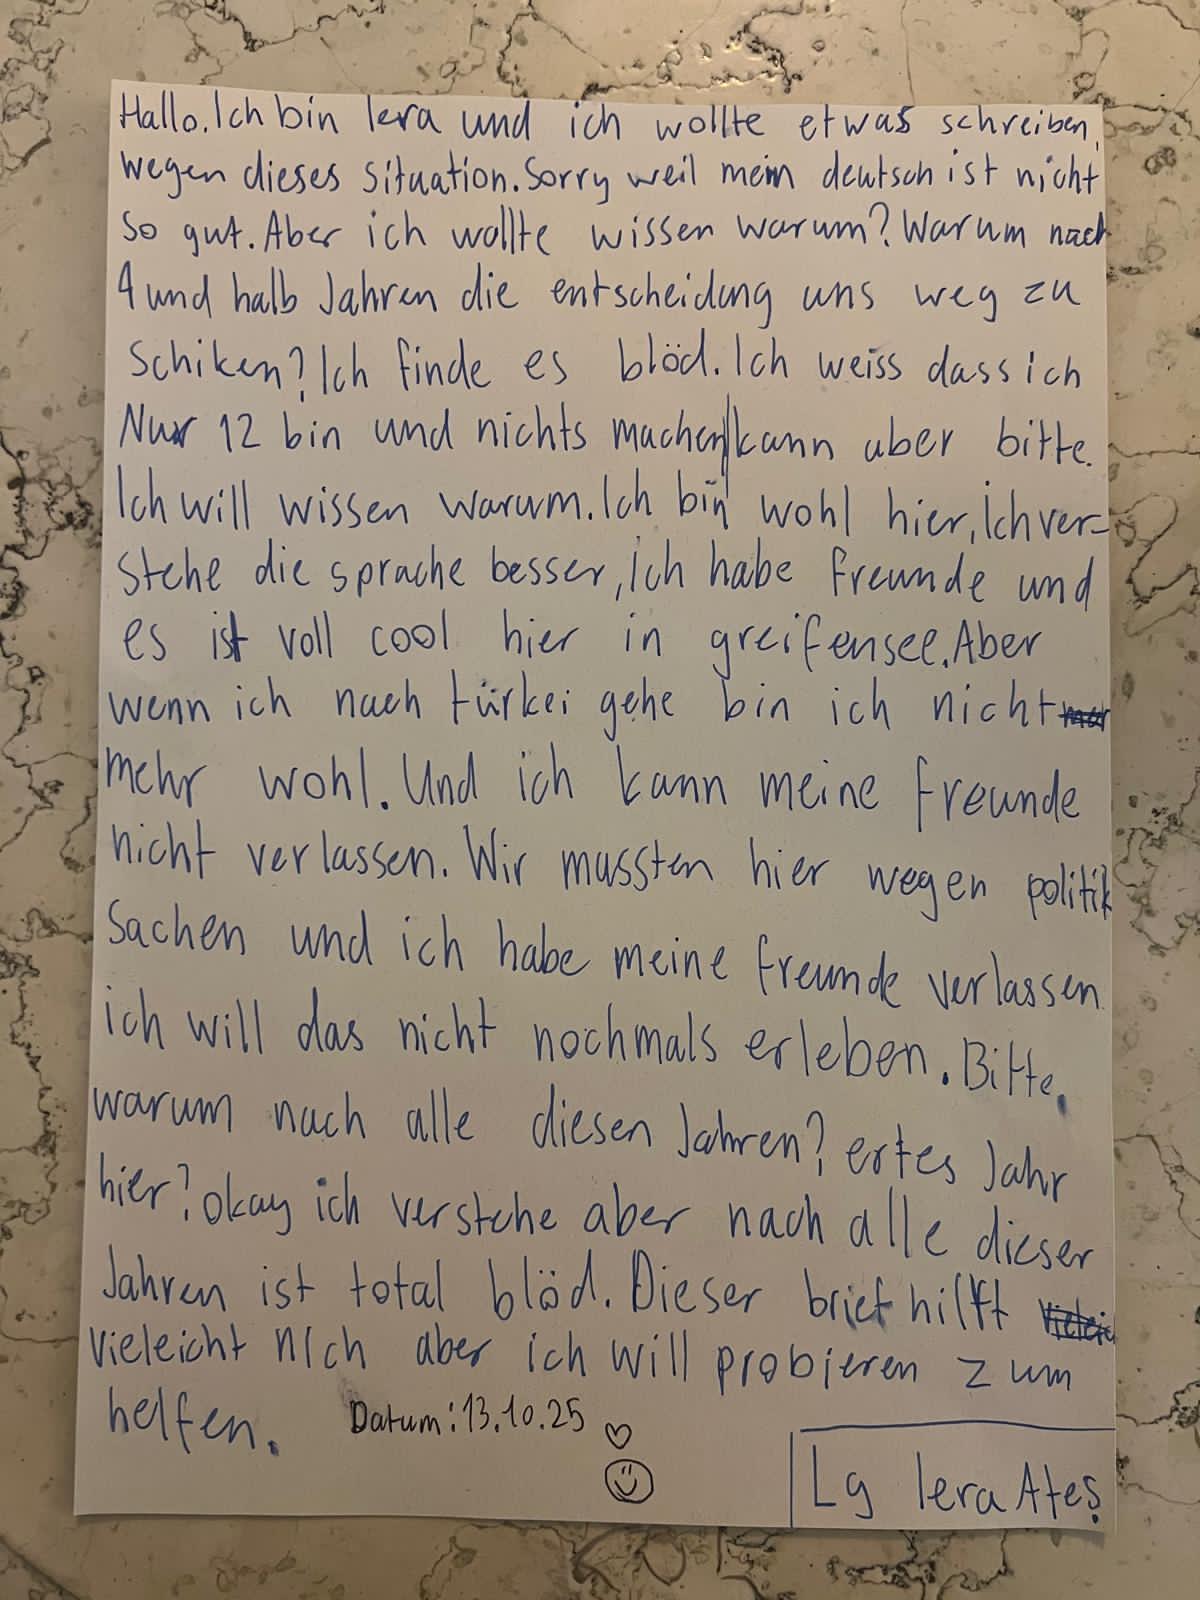 Hallo. Ich bin lera und ich wollte etwas schreiben,
wegen dieses situation. Sorry weil mein deutsch ist nicht
so gut. Aber ich wollte wissen warum? Warum nach
4 und halb Jahren die entscheidung uns weg zu
schiken? Ich finde es blöd. Ich weiss dass ich
Nur 12 bin und nichts machen kann aber bitte.
Ich will wissen warum. Ich bin wohl hier, ich ver=
stehe die sprache besser, ich habe freunde und
es ist voll cool hier in greifensee. Aber
wenn ich nach türkei gehe bin ich nicht
mehr wohl. Und ich kann meine freunde
nicht verlassen. Wir mussten hier wegen politik
sachen und ich habe meine freunde verlassen
ich will das nicht nochmals erleben. Bitte.
warum nach alle diesen Jahren? ertes Jahr
hier? okay ich verstehe aber nach alle dieser
Jahren ist total blöd. Dieser brief hilft
vieleicht nich aber ich will probieren zum
helfen. Datum: 13.10.25
Lg lera Ateş